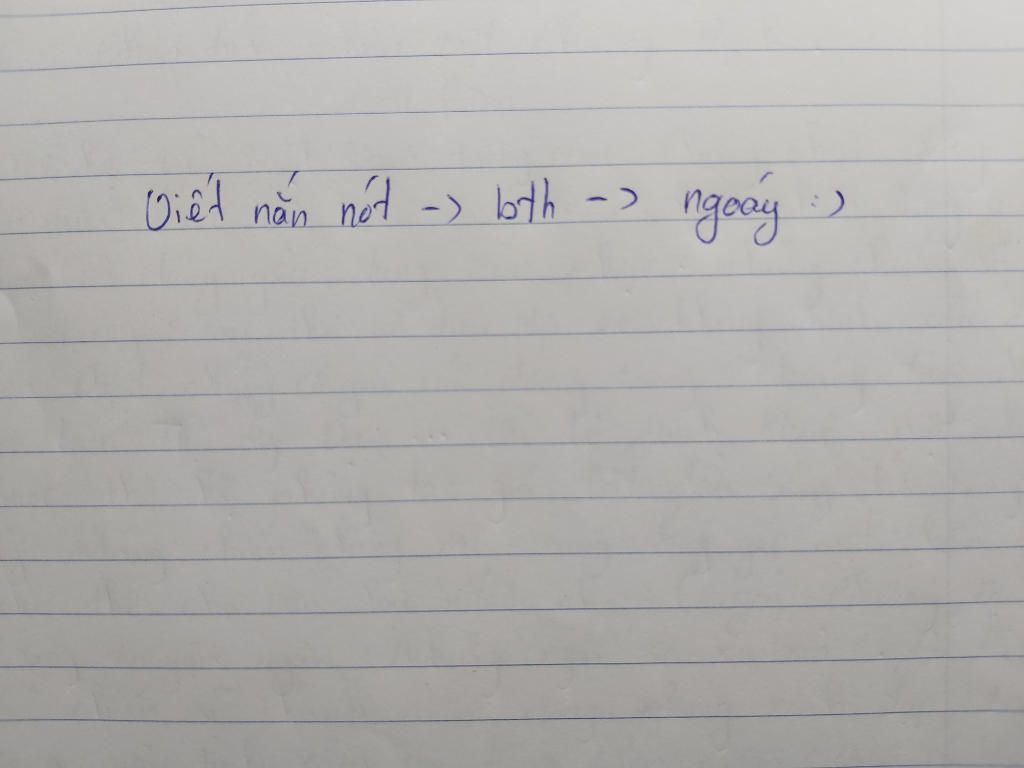 Viết nắn nót -> bth -> ngoáy :)